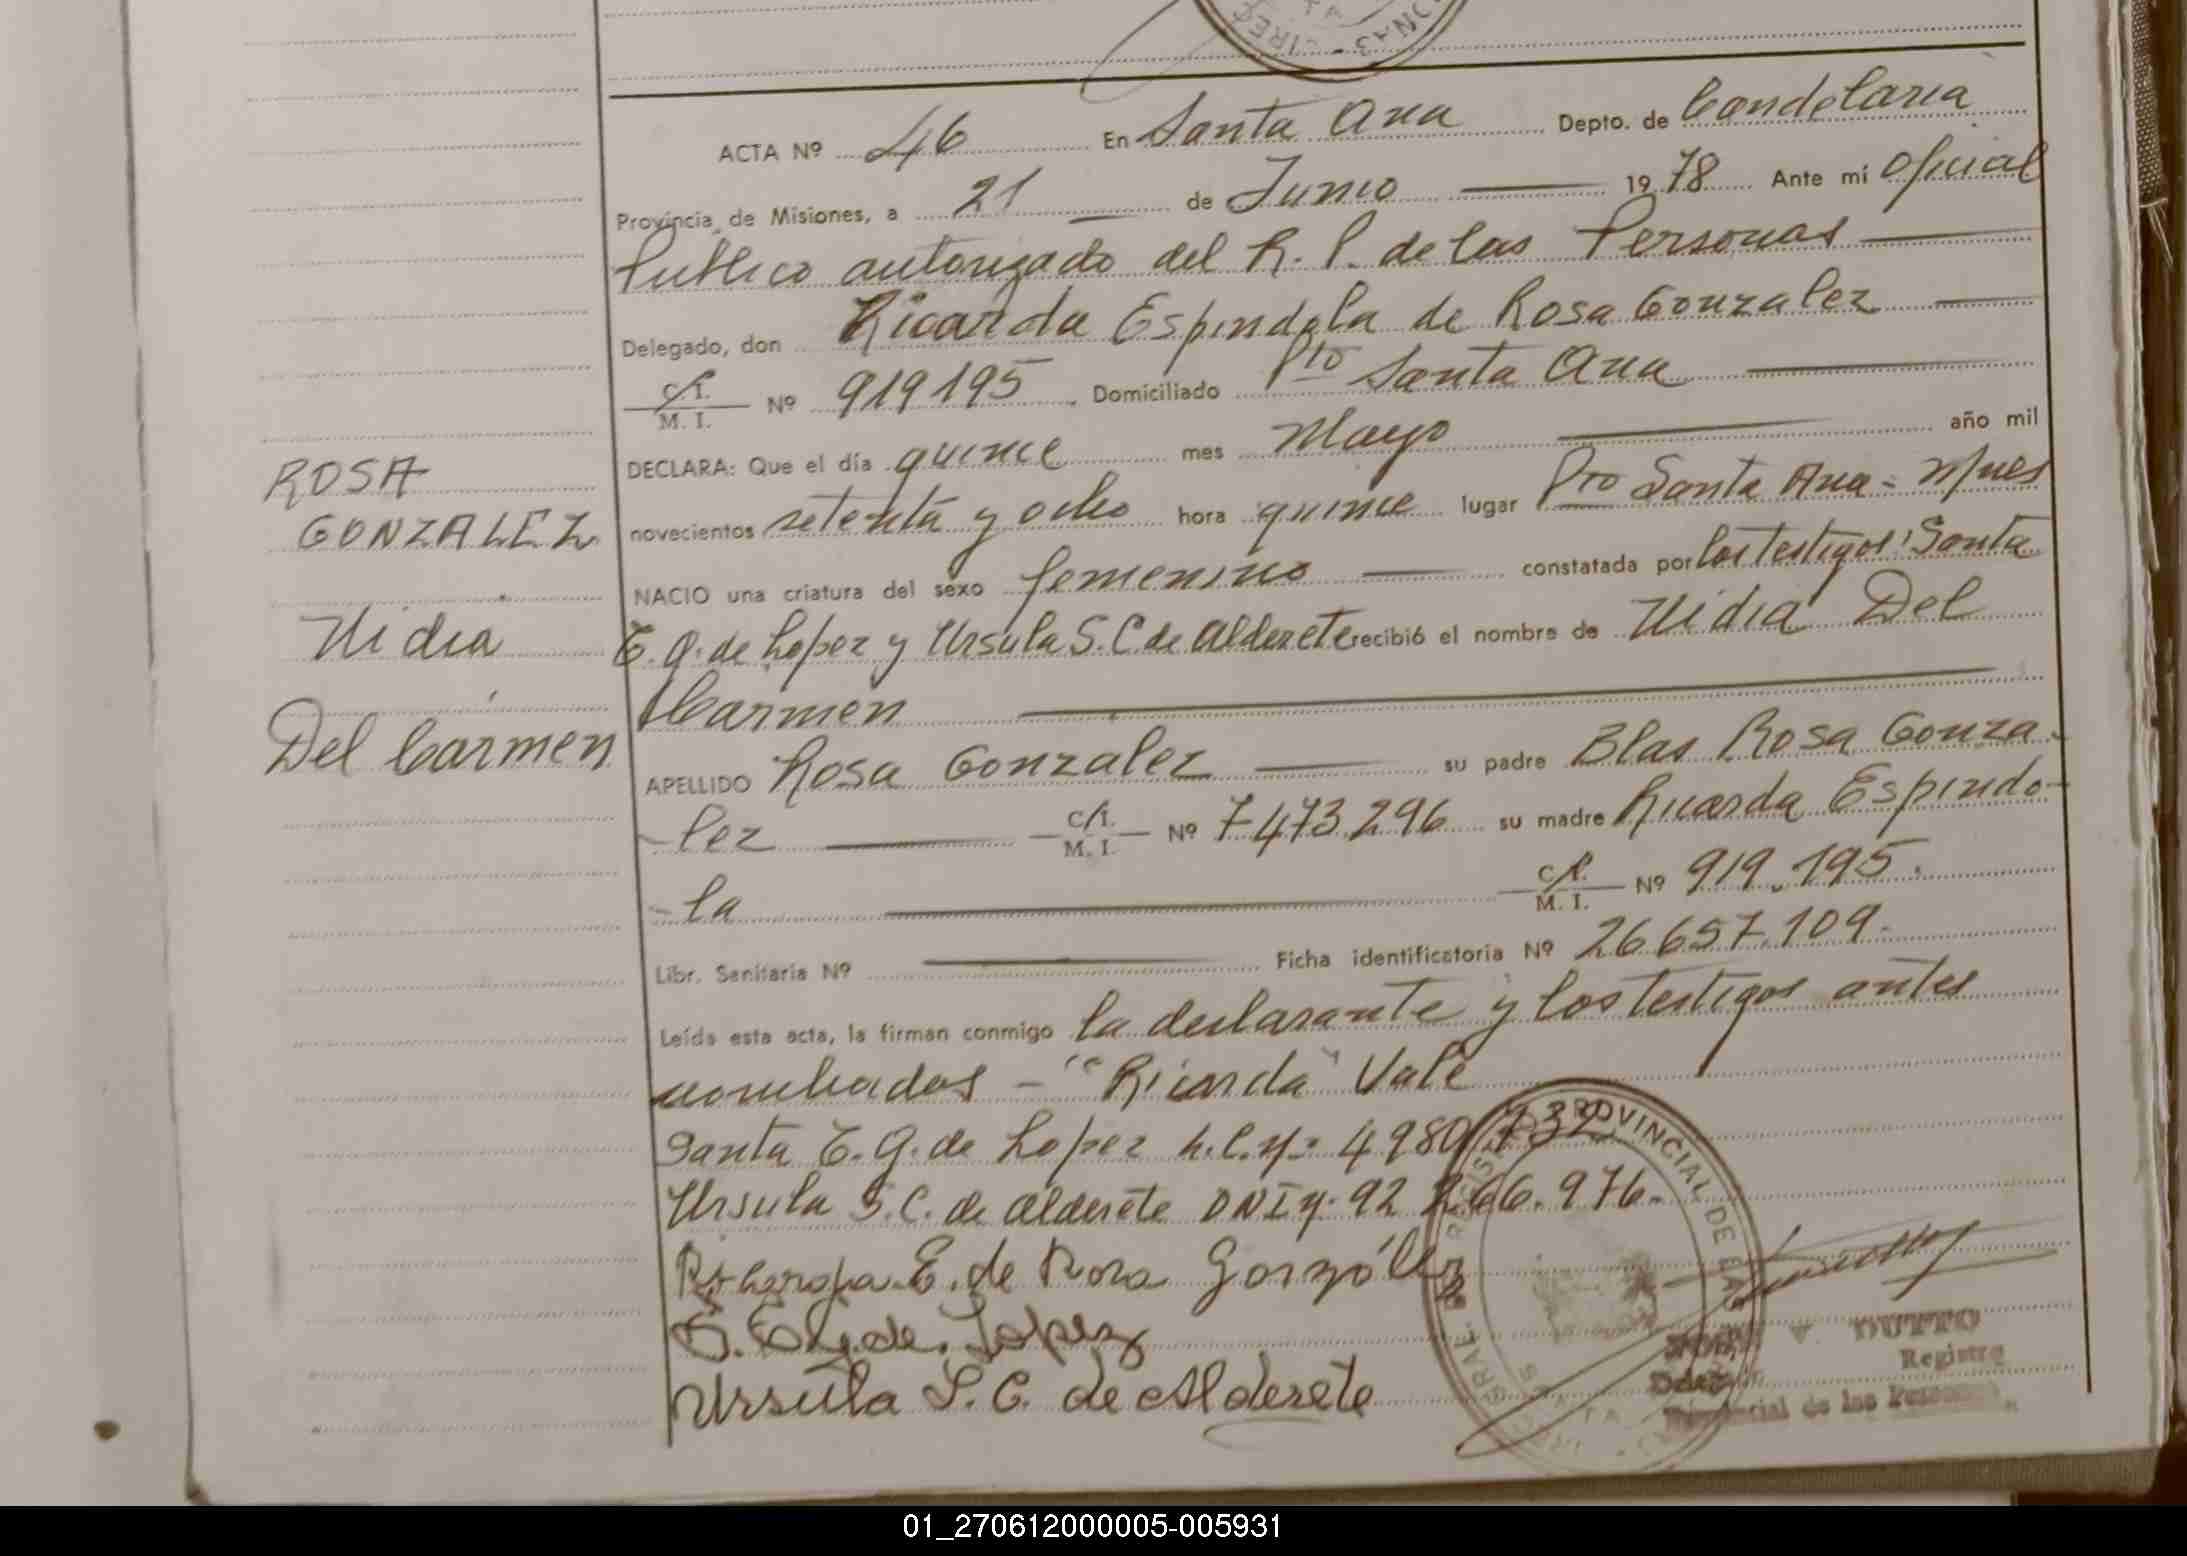 ACTA Nº 46 En Santa Ana Depto. de Candelaria
Provincia de Misiones, a 21 de Junio 1978 Ante mi Oficial
Publico autorizado del R. P. de las Personas
Delegado, don Ricarda Espindola de Rosa Gonzalez
C.I. M. I. Nº 919195 Domiciliado Pto Santa Ana
DECLARA: Que el día quince mes Mayo año mil
novecientos setenta y ocho hora quince lugar Pto Santa Ana - Mnes
NACIO una criatura del sexo femenino constatada por los testigos: Santa
E. G. de Lopez y Ursula S. C de Alderete recibió el nombre de Nidia Del
Carmen
APELLIDO Rosa Gonzalez su padre Blas Rosa Gonza-
-lez C.I. M. I. Nº 7.473.296 su madre Ricarda Espindo-
-la C.I. M. I. Nº 919.195.
Libr. Sanitaria Nº Ficha identificatoria Nº 26657.109.
Leída esta acta, la firman conmigo la declarante y los testigos antes
nombrados - "Ricarda" Vale
Santa E. G. de Lopez L.C.Nº 4980732
Ursula S. C. de Alderete DNI Nº 92 266.976.
E. de Rosa González
de Lopez
Ursula S. C. de Alderete
ROSA
GONZALEZ
Nidia
Del Carmen
PROVINCIAL DE LAS
DUTTO
Registro
Provincial de las Personas
01_270612000005-005931